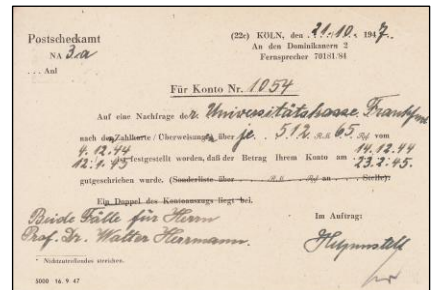 Postscheckamt
NA 3a
... Anl
(22c) KÖLN, den 21.10. 1947.
An den Dominikanern 2
Fernsprecher 70181/84
Für Konto Nr. 1054
Auf eine Nachfrage der Universitätskasse Frankfurt
nach den Zahlkarte / Überweisung über je 512 R.M. 65 Rpf vom
4.12.44 14.12.44
12.1.45 ist festgestellt worden, daß der Betrag Ihrem Konto am 23.2.45.
gutgeschrieben wurde. (Sonderliste über R.M. Rpf an Stelle):
Ein Doppel des Kontoauszugs liegt bei.
Beide Fälle für Herrn
Prof. Dr. Walter Herrmann.
Im Auftrag:
* Nichtzutreffendes streichen.
5000 16. 9 47